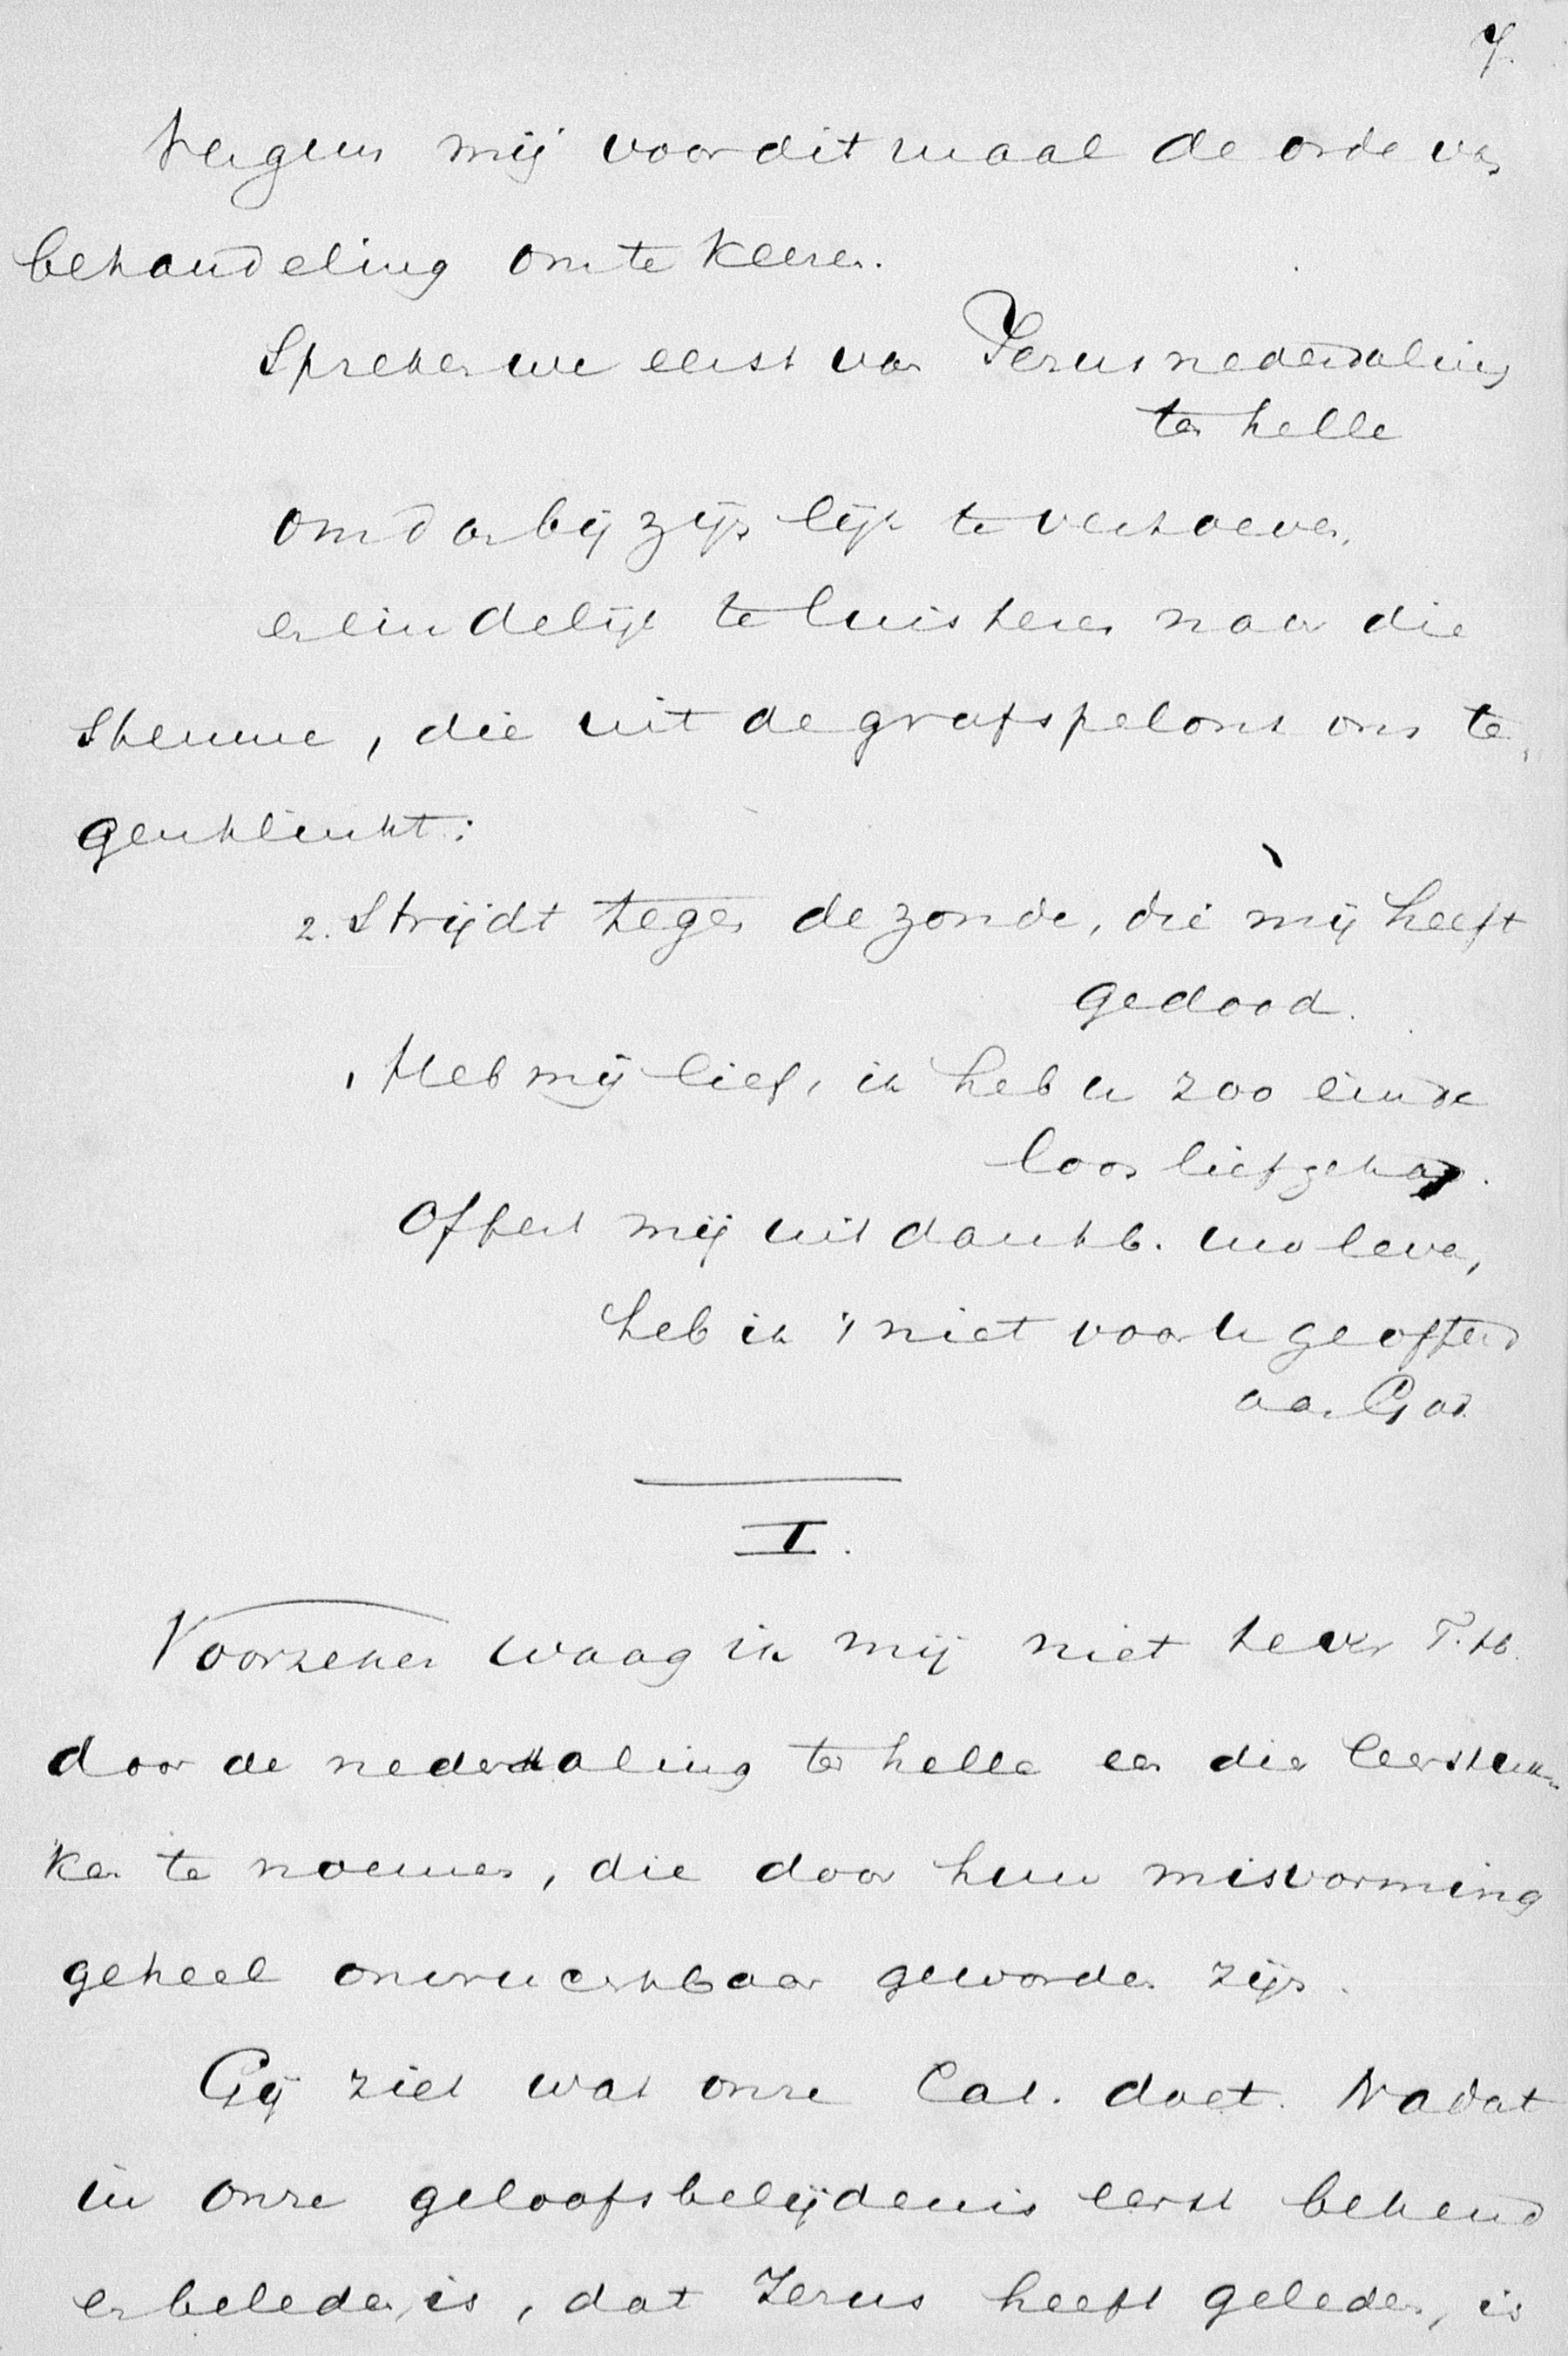 7.
mij voor ditmaal de orde van
behandeling om te keeren.
Spreken we eerst van Jezus nederdaling
ter helle
om dan bij zijn lijk te vertoeven,
en eindelijk te luisteren naar die
stemme, die uit de grafspelonk ons te-
genklinkt:
2. Strijdt tegen de zonde, die mij heeft
gedood.
1 Heb mij lief, ik heb u zoo einde
loos liefgehad.
Offert mij uit dankb. uw leven,
heb ik 't niet voor u geofferd
aan God
I.
Voorzeker waag ik mij niet te ver T. H.
door de nederdaling ter helle een dier leerstuk-
ken te noemen, die door hun misvorming
geheel onkenbaar geworden zijn.
Gij ziet wat onze Cat. doet. Nadat
in onze geloofsbelijdenis eerst bekend
en beleden is, dat Jezus heeft geleden, is